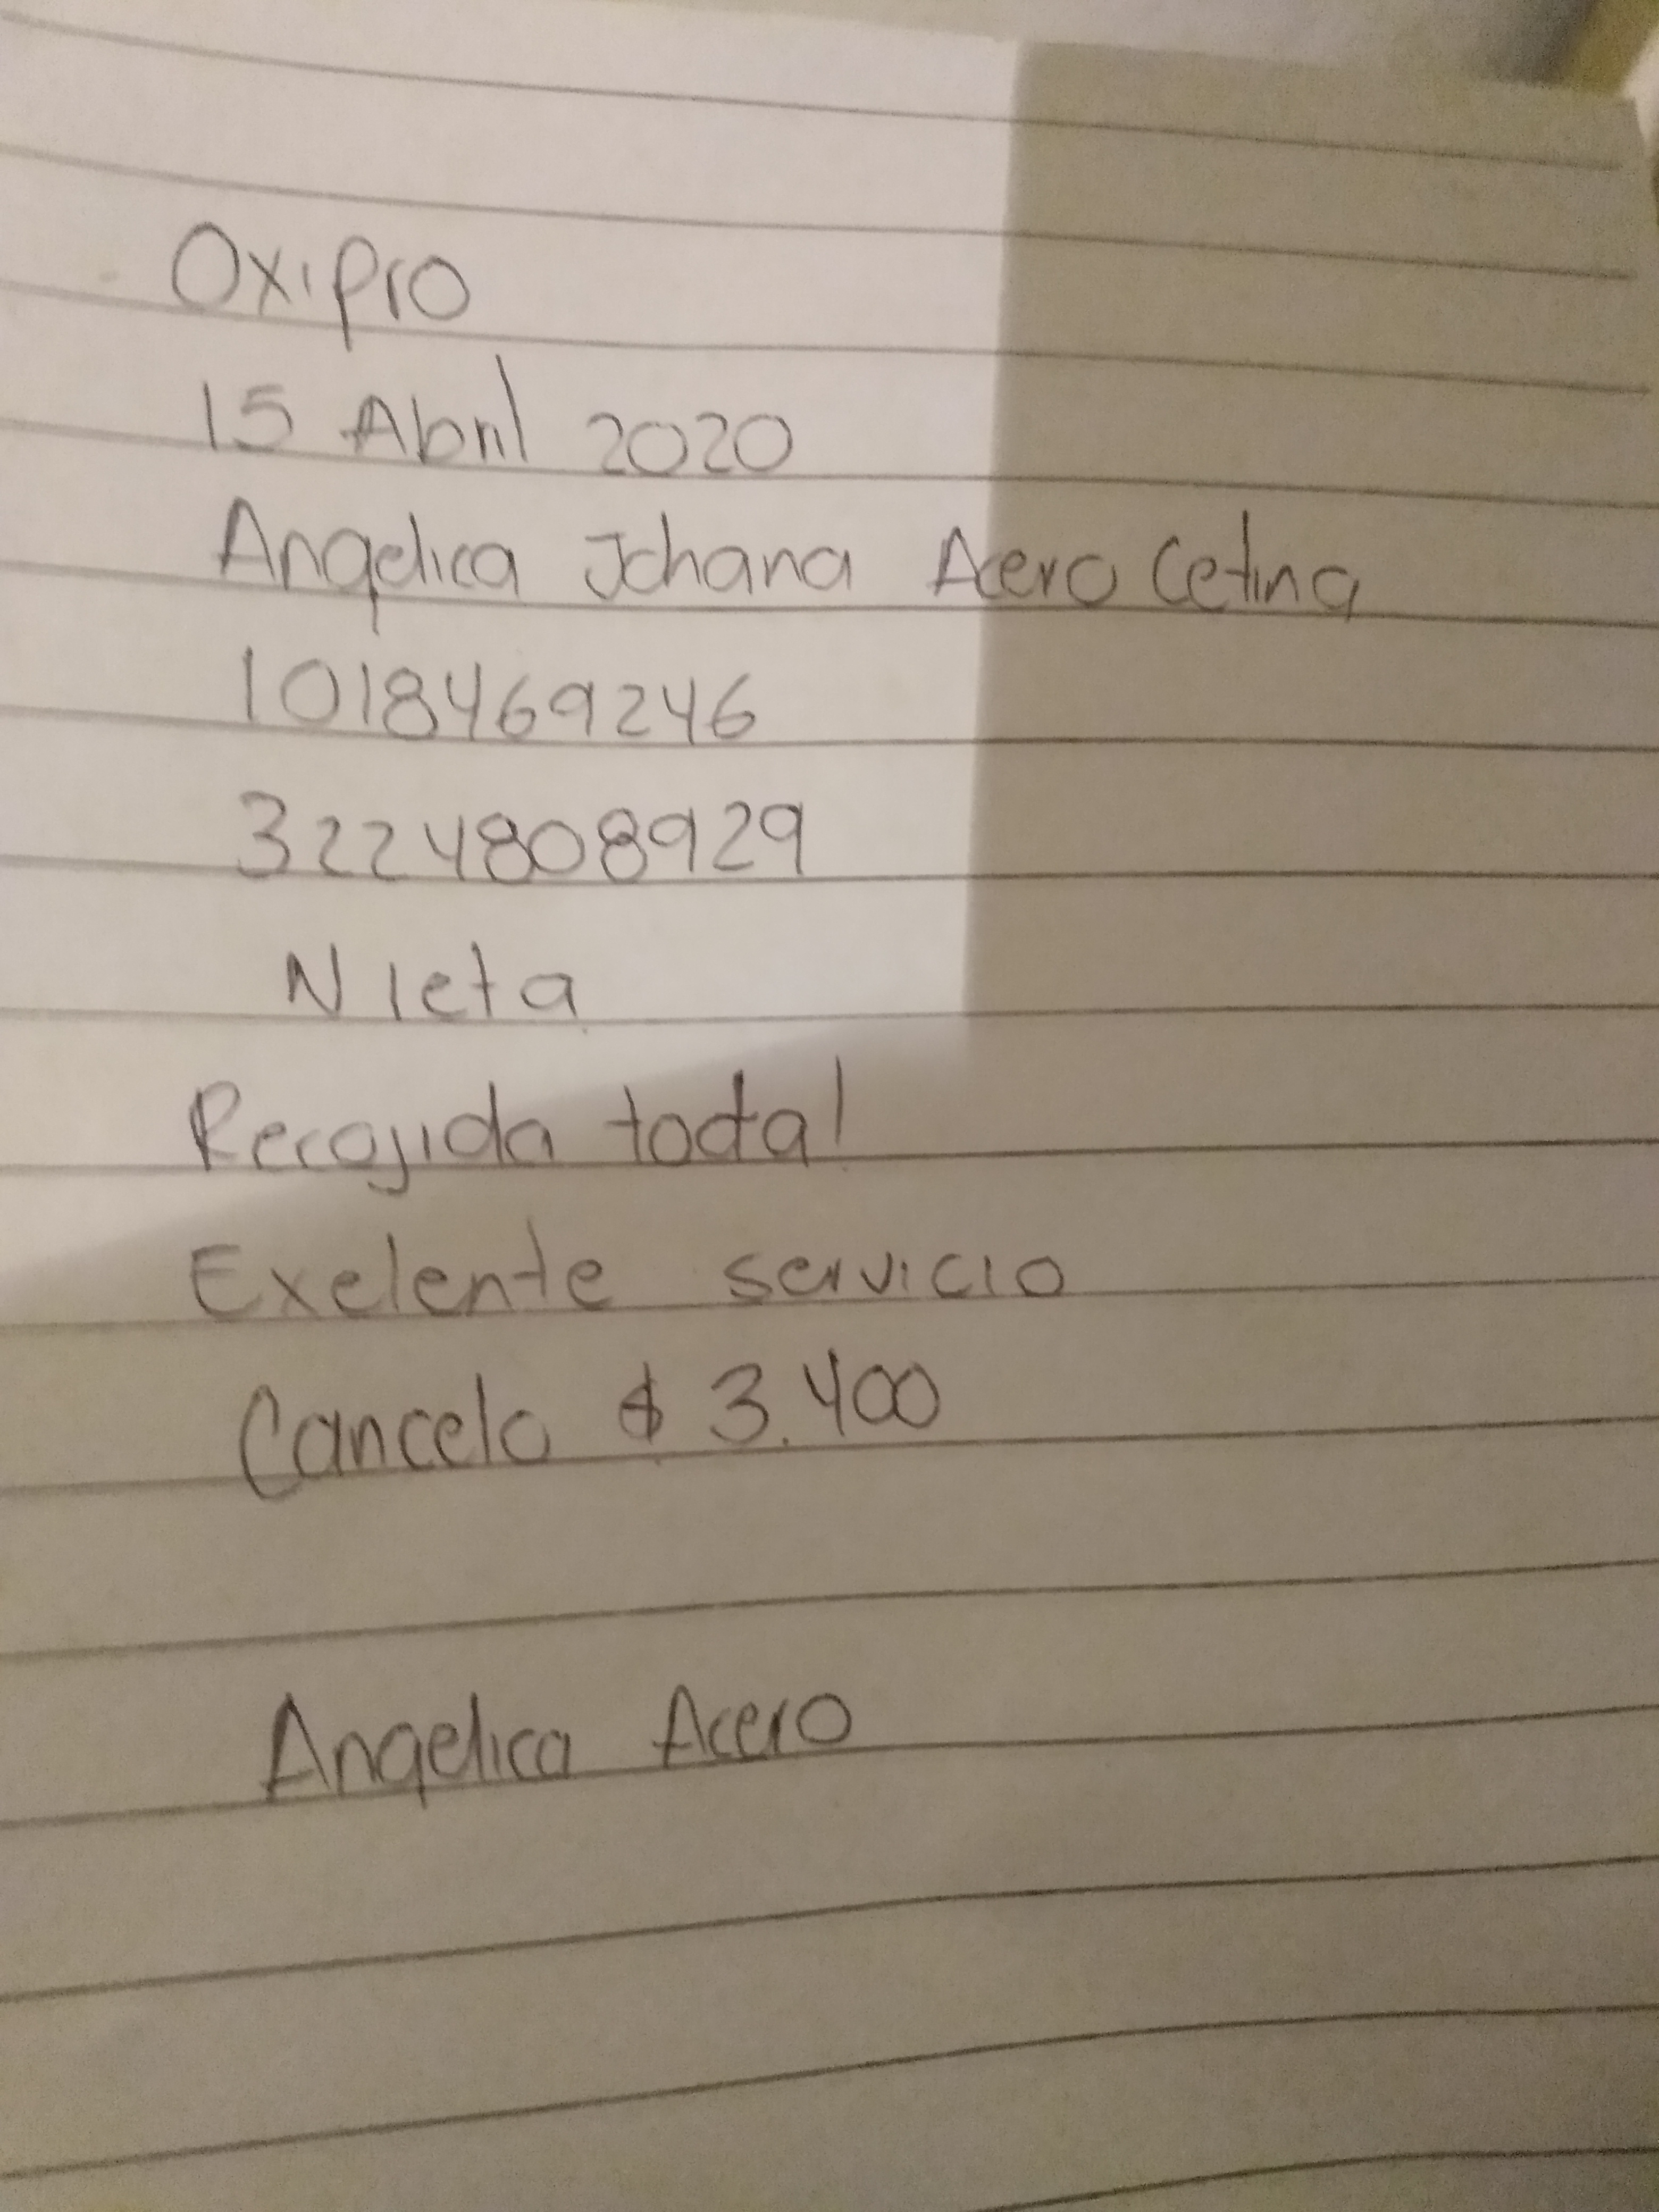 Oxipro
15 Abril 2020
Angelica Johana Acero Cetina
1018469246
3224808929
Nieta
Recojida total
Exelente servicio
Cancelo $ 3.400
Angelica Acero